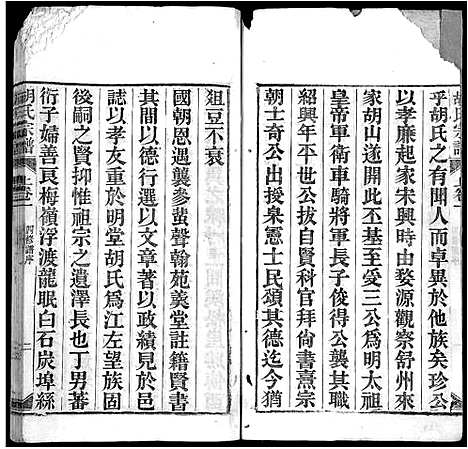 乎胡氏之有聞人而卓異於他族矣珍公
以孝廉起家宋興時由婺源觀察舒州來
家胡山遂開此丕基至受三公爲明太祖
皇帝軍衛車騎將軍長子俊得公襲其職
紹興年平世公拔自賢科官拜尙書熹宗
朝士奇公出授泉憲士民頌其德迄今猶
俎豆不衰
國朝恩遇襲參蜚聲翰苑羲堂註籍賢書
其間以德行選以文章著以政績見於邑
誌以孝友重於明堂胡氏爲江左望族固
後嗣之賢抑惟祖宗之遺澤長也丁男蕃
衍子婦善良梅嶺浮渡龍眠白石炭埠絲
胡氏宗譜
卷
四修譜序
二